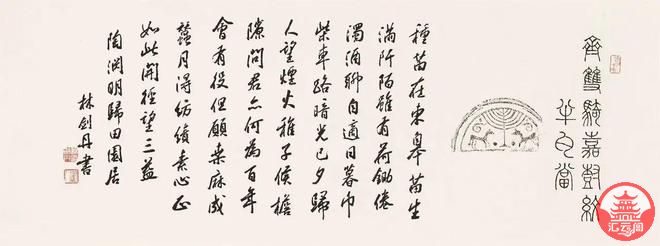 齊雙騎嘉樹紋
半瓦當
種苗在東皋苗生
滿阡陌雖有荷鋤倦
濁酒聊自適日暮巾
柴車路暗光已夕歸
人望煙火稚子候檐
隙問君亦何為百年
會有役但願桑麻成
蠶月得紡績素心正
如此開徑望三益
陶淵明歸田園居
林劍丹書
汇云阁